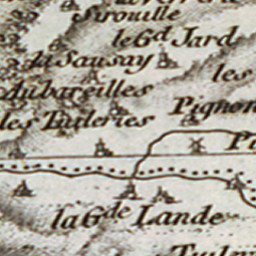 Sirouille
le Gd Jard
la Sausay
les
Aubareilles
Pignon
les Tuileries
la Gde Lande